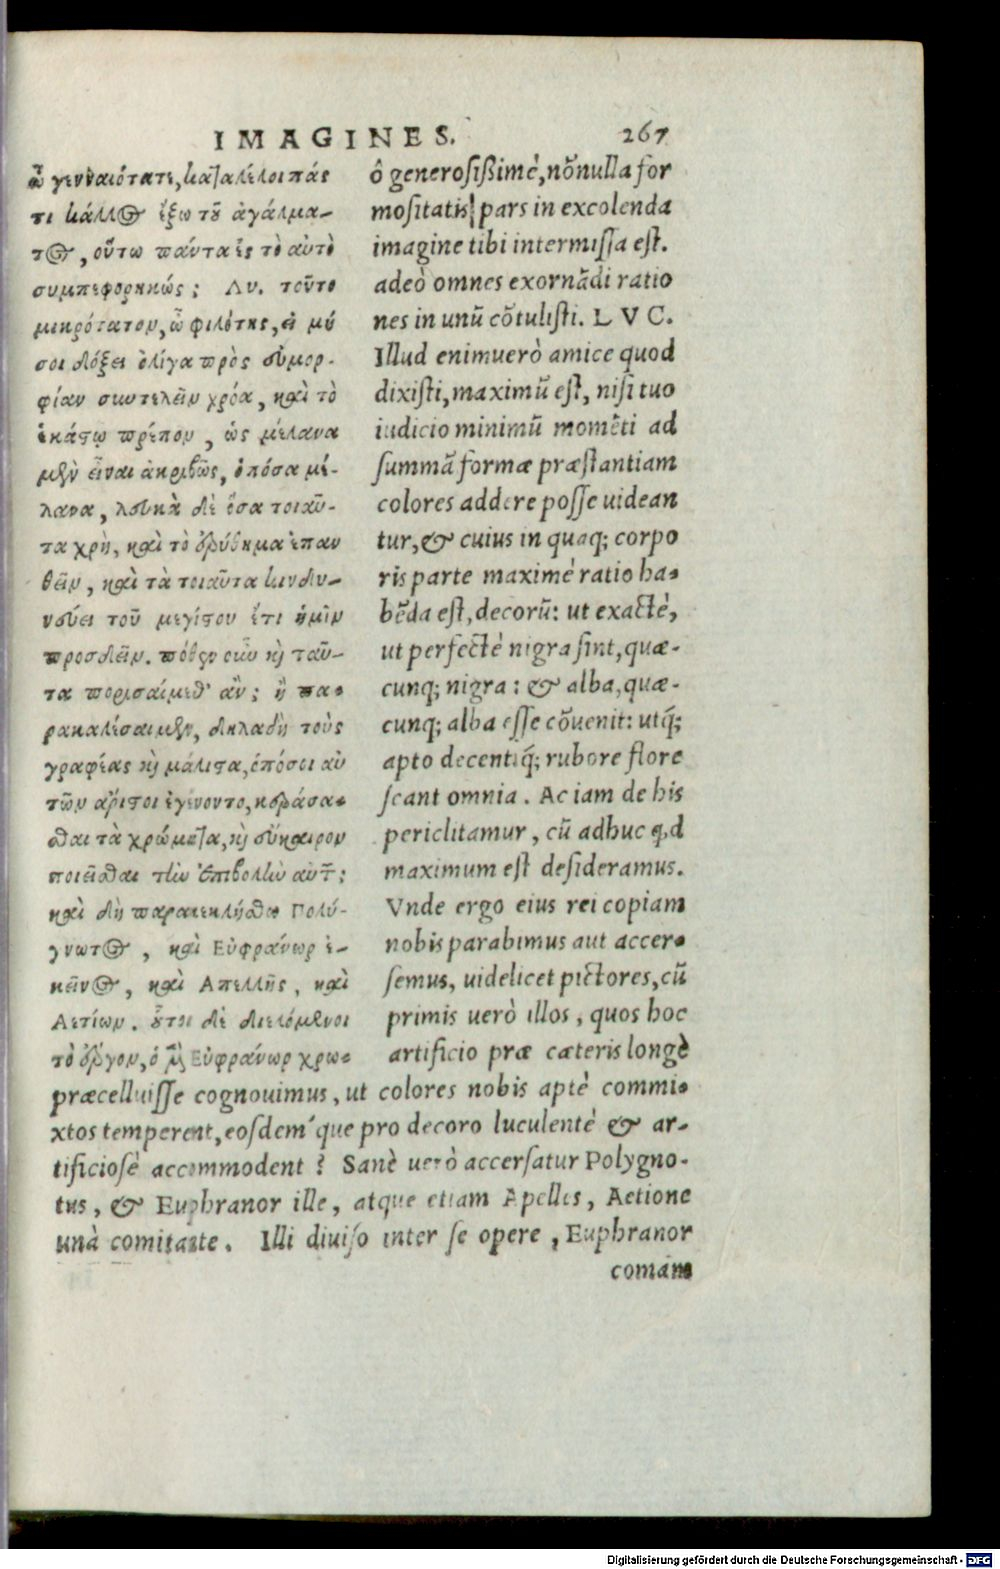 IMAGINES. 267
ὦ γενναιότατε, καταλέλοιπάς
τι κάλλος ἔξω τοῦ ἀγάλμα-
τος, οὕτω πάντα ἐς τὸ αὐτὸ
συμπεφορηκώς; Λυ. τοῦτο
μικρότατον, ὦ φιλότης, εἰ μή
σοι δόξει ὀλίγα πρὸς εὐμορ-
φίαν συντελεῖν χρόα, καὶ τὸ
ἑκάστῳ πρέπον, ὡς μέλανα
μὲν εἶναι ἀκριβῶς, ὁπόσα μέ-
λανα, λευκὰ δὲ ὅσα τοιαῦ-
τα χρὴ, καὶ τὸ ἐρύθημα ἐπαν
θεῖν, καὶ τὰ τοιαῦτα κινδυ-
νεύει τοῦ μεγίστου ἔτι ἡμῖν
προσδεῖν. πόθεν οὖν καὶ ταῦ-
τα πορισαίμεθ' ἂν; ἢ πα-
ρακαλέσαιμεν, δηλαδὴ τοὺς
γραφέας καὶ μάλιστα, ὁπόσοι αὐ
τῶν ἄριστοι ἐγένοντο, κεράσα-
σθαι τὰ χρώματα, καὶ εὔκαιρον
ποιεῖσθαι τὴν ἐπιβολὴν αὐτ͂;
καὶ δὴ παρακεκλήσθω Πολύ-
γνωτος, καὶ Εὐφράνωρ ἐ-
κεῖνος, καὶ Απελλῆς, καὶ
Αετίων. οὗτοι δὲ διελόμενοι
τὸ ἔργον, ὁ μὲν Εὐφράνωρ χρω-
ô generosißimè, nõnulla for
mositatis pars in excolenda
imagine tibi intermissa est.
adeò omnes exornãdi ratio
nes in unũ cõtulisti. L V C.
Illud enimuerò amice quod
dixisti, maximũ est, nisi tuo
iudicio minimũ momẽti ad
summã formæ præstantiam
colores addere posse uidean
tur, & cuius in quaq; corpo
ris parte maximè ratio ha-
bẽda est, decorũ: ut exactè,
ut perfectè nigra sint, quæ-
cunq; nigra: & alba, quæ-
cunq; alba esse cõuenit: utq́;
apto decentiq́; rubore flore
scant omnia. Ac iam de his
periclitamur, cũ adhuc qd
maximum est desideramus.
Vnde ergo eius rei copiam
nobis parabimus aut accer-
semus, uidelicet pictores, cũ
primis uerò illos, quos hoc
artificio præ cæteris longè
præcelluisse cognouimus, ut colores nobis aptè commi-
xtos temperent, eosdem´que pro decoro luculentè & ar-
tificiosè accommodent? Sanè uerò accersatur Polygno-
tus, & Euphranor ille, atque etiam Apelles, Aetione
unà comitante. Illi diuiso inter se opere, Euphranor
coman
Digitalisierung gefördert durch die Deutsche Forschungsgemeinschaft - DFG